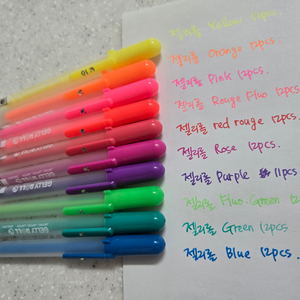 젤리롤 Yellow 12pcs.
젤리롤 Orange 12pcs.
젤리롤 Pink 12pcs.
젤리롤 Rouge Fluo 12pcs.
젤리롤 red rouge 12pcs.
젤리롤 Rose 12pcs.
젤리롤 Purple 11pcs
젤리롤 Fluo. Green 12pcs
젤리롤 Green 12pcs
젤리롤 Blue 12pcs
GELLY ROLL